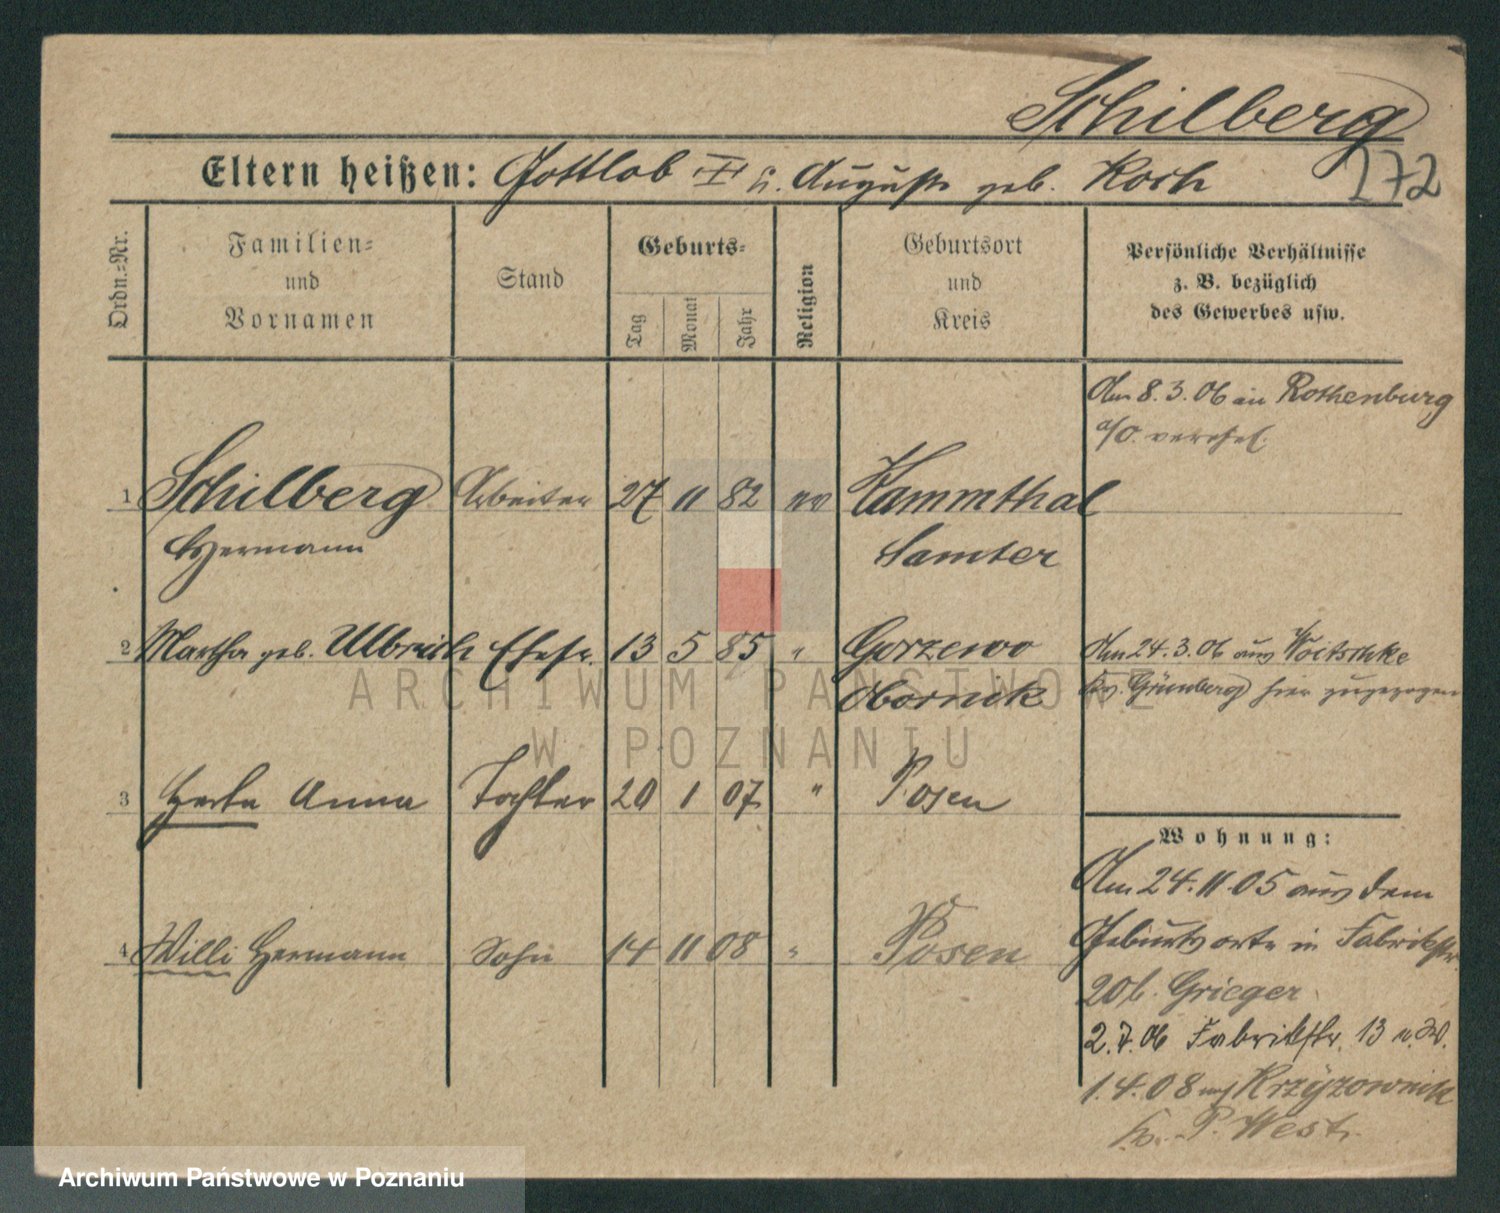 Schilberg
272
Eltern heißen: Gottlob u. Auguste geb. Koch
Ordn.-Nr.
Familien-
und
Vornamen
Stand
Geburts-
Tag
Monat
Jahr
Religion
Geburtsort
und
Kreis
Persönliche Verhältnisse
z. B. bezüglich
des Gewerbes usw.
Am 8.3.06 in Rothenburg
a/O. verehel.
1 Schilberg Arbeiter 27 11 82 ev Kammthal
Hermann Samter
2 Martha geb. Ulbrich Ehefr. 13 5 85 " Gorzewo
Obornik
Am 24.3.06 aus Woitschke
Kr. Grünberg hier zugezogen
3 Herta Anna Tochter 20 1 07 " Posen
4 Willi Hermann Sohn 14 11 08 " Posen
Wohnung:
Am 24.11.05 aus dem
Geburtsorte in Fabrikstr.
20 b. Grieger
2.7.06 Fabrikstr. 13 u. W.
1.4.08 Krzyzownik
Kr. P. West.
ARCHIWUM PAŃSTWOWE
W POZNANIU
Archiwum Państwowe w Poznaniu